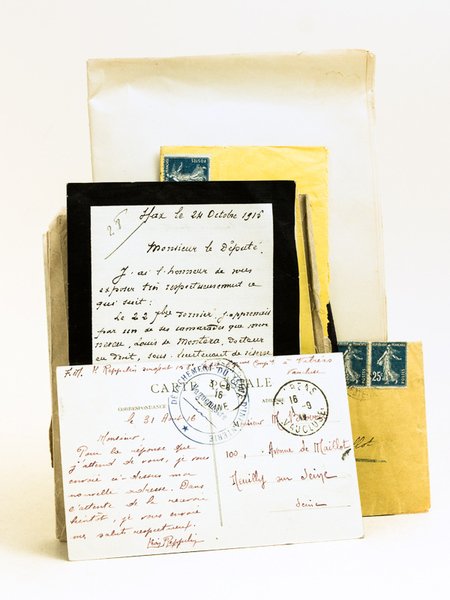 28
Dax le 24 Octobre 1915
Monsieur le Député.
J'ai l'honneur de vous
exposer très respectueusement ce
qui suit:
Le 22 7bre dernier j'apprenais
par un de ses camarades que mon
neveu, Louis de Montera, docteur
en Droit, sous-lieutenant de réserve
F.M. R Reppelin
à Velrées
Vaucluse
CARTE POSTALE
CORRESPONDANCE
DÉTACHEMENT DU
PERPIGNANE
VAUCLUSE
16
le 31 Août 16
Monsieur,
Pour la réponse que
j'attend de vous, je vous
envoie ci-dessus mon
nouvelle adresse. Dans
l'attente de la recevoir
bientôt, je vous envoie
mes saluts respectueux.
Reppelin
Monsieur M
100, Avenue de Maillot
Neuilly sur Seine
Seine
25c